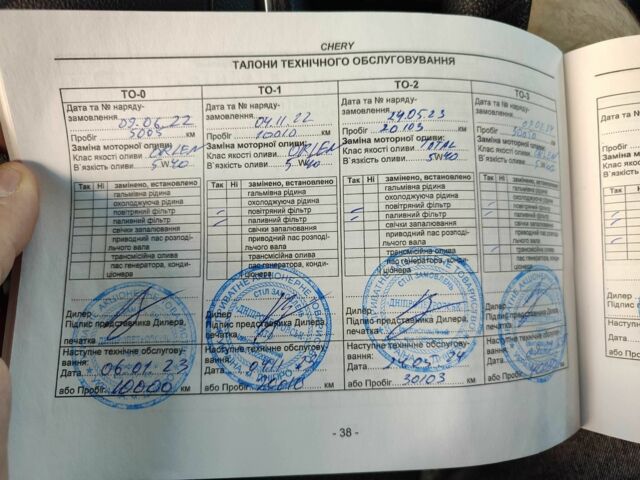 CHERY
ТАЛОНИ ТЕХНІЧНОГО ОБСЛУГОВУВАННЯ
ТО-0
Дата та № наряду-
замовлення
09.06.22
Пробіг 5005 км
Заміна моторної оливи:
Клас якості оливи ORLEN
В`язкість оливи 5W40
Так Ні замінено, встановлено
гальмівна рідина
охолоджуюча рідина
повітряний фільтр
паливний фільтр
свічки запалювання
приводний пас розподі-
льчого вала
трансмісійна олива
пас генератора, конди-
ціонера
Дилер
Підпис представника Дилера,
печатка
Наступне технічне обслугову-
вання:
Дата
або Пробіг 10000 км
ТО-1
Дата та № наряду-
замовлення
04.11.22
Пробіг 10010 км
Заміна моторної оливи:
Клас якості оливи ORLEN
В`язкість оливи 5W40
Так Ні замінено, встановлено
гальмівна рідина
охолоджуюча рідина
повітряний фільтр
паливний фільтр
свічки запалювання
приводний пас розподі-
льчого вала
трансмісійна олива
пас генератора, конди-
ціонера
Дилер
Підпис представника Дилера,
печатка
Наступне технічне обслугову-
вання:
Дата
або Пробіг км
ТО-2
Дата та № наряду-
замовлення
24.05.23
Пробіг 20103 км
Заміна моторної оливи:
Клас якості оливи TOTAL
В`язкість оливи 5W40
Так Ні замінено, встановлено
гальмівна рідина
охолоджуюча рідина
повітряний фільтр
паливний фільтр
свічки запалювання
приводний пас розподі-
льчого вала
трансмісійна олива
пас генератора, конди-
ціонера
Дилер
Підпис представника Дилера,
печатка
Наступне технічне обслугову-
вання:
Дата 24.05 24
або Пробіг 30103 км
ТО-3
Дата та № наряду-
замовлення
Пробіг км
Заміна моторної оливи:
Клас якості оливи
В`язкість оливи 5W40
Так Ні замінено, встановлено
гальмівна рідина
охолоджуюча рідина
повітряний фільтр
паливний фільтр
свічки запалювання
приводний пас розподі-
льчого вала
трансмісійна олива
пас генератора, конди-
ціонера
Дилер
Підпис представника Дилера,
печатка
Наступне технічне обслугову-
вання:
Дата
або Пробіг км
- 38 -